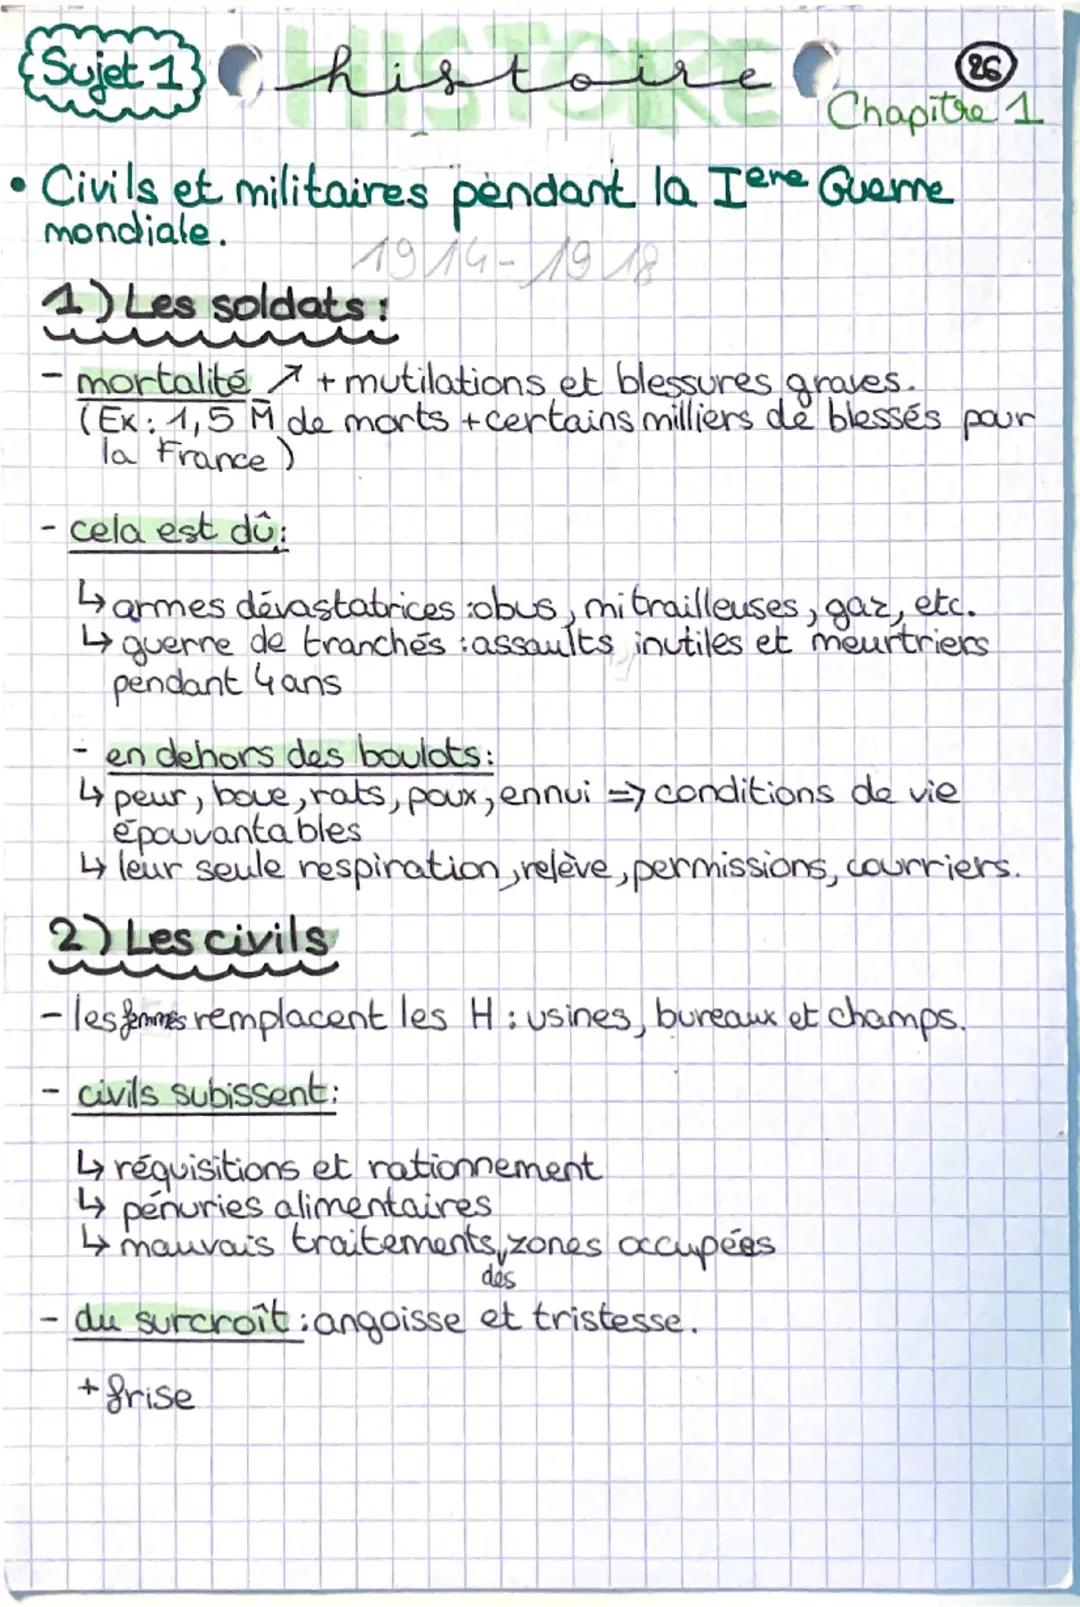 Sujet 1
HISTOIRE
histoire
26
Chapitre 1
• Civils et militaires pendant la Ière Guerre
mondiale.
1914-1918
1) Les soldats :
- mortalité ↗ + mutilations et blessures graves.
(Ex : 1,5 M de morts + certains milliers de blessés pour
la France)
- cela est dû :
↳ armes dévastatrices : obus, mitrailleuses, gaz, etc.
↳ guerre de tranchés : assaults inutiles et meurtriers
pendant 4 ans
- en dehors des boulots :
↳ peur, boue, rats, poux, ennui => conditions de vie
épouvantables
↳ leur seule respiration, relève, permissions, courriers.
2) Les civils
- les femmes remplacent les H : usines, bureaux et champs.
- civils subissent :
↳ réquisitions et rationnement
↳ pénuries alimentaires
↳ mauvais traitements, zones occupées
des
- du surcroît : angoisse et tristesse.
+ frise